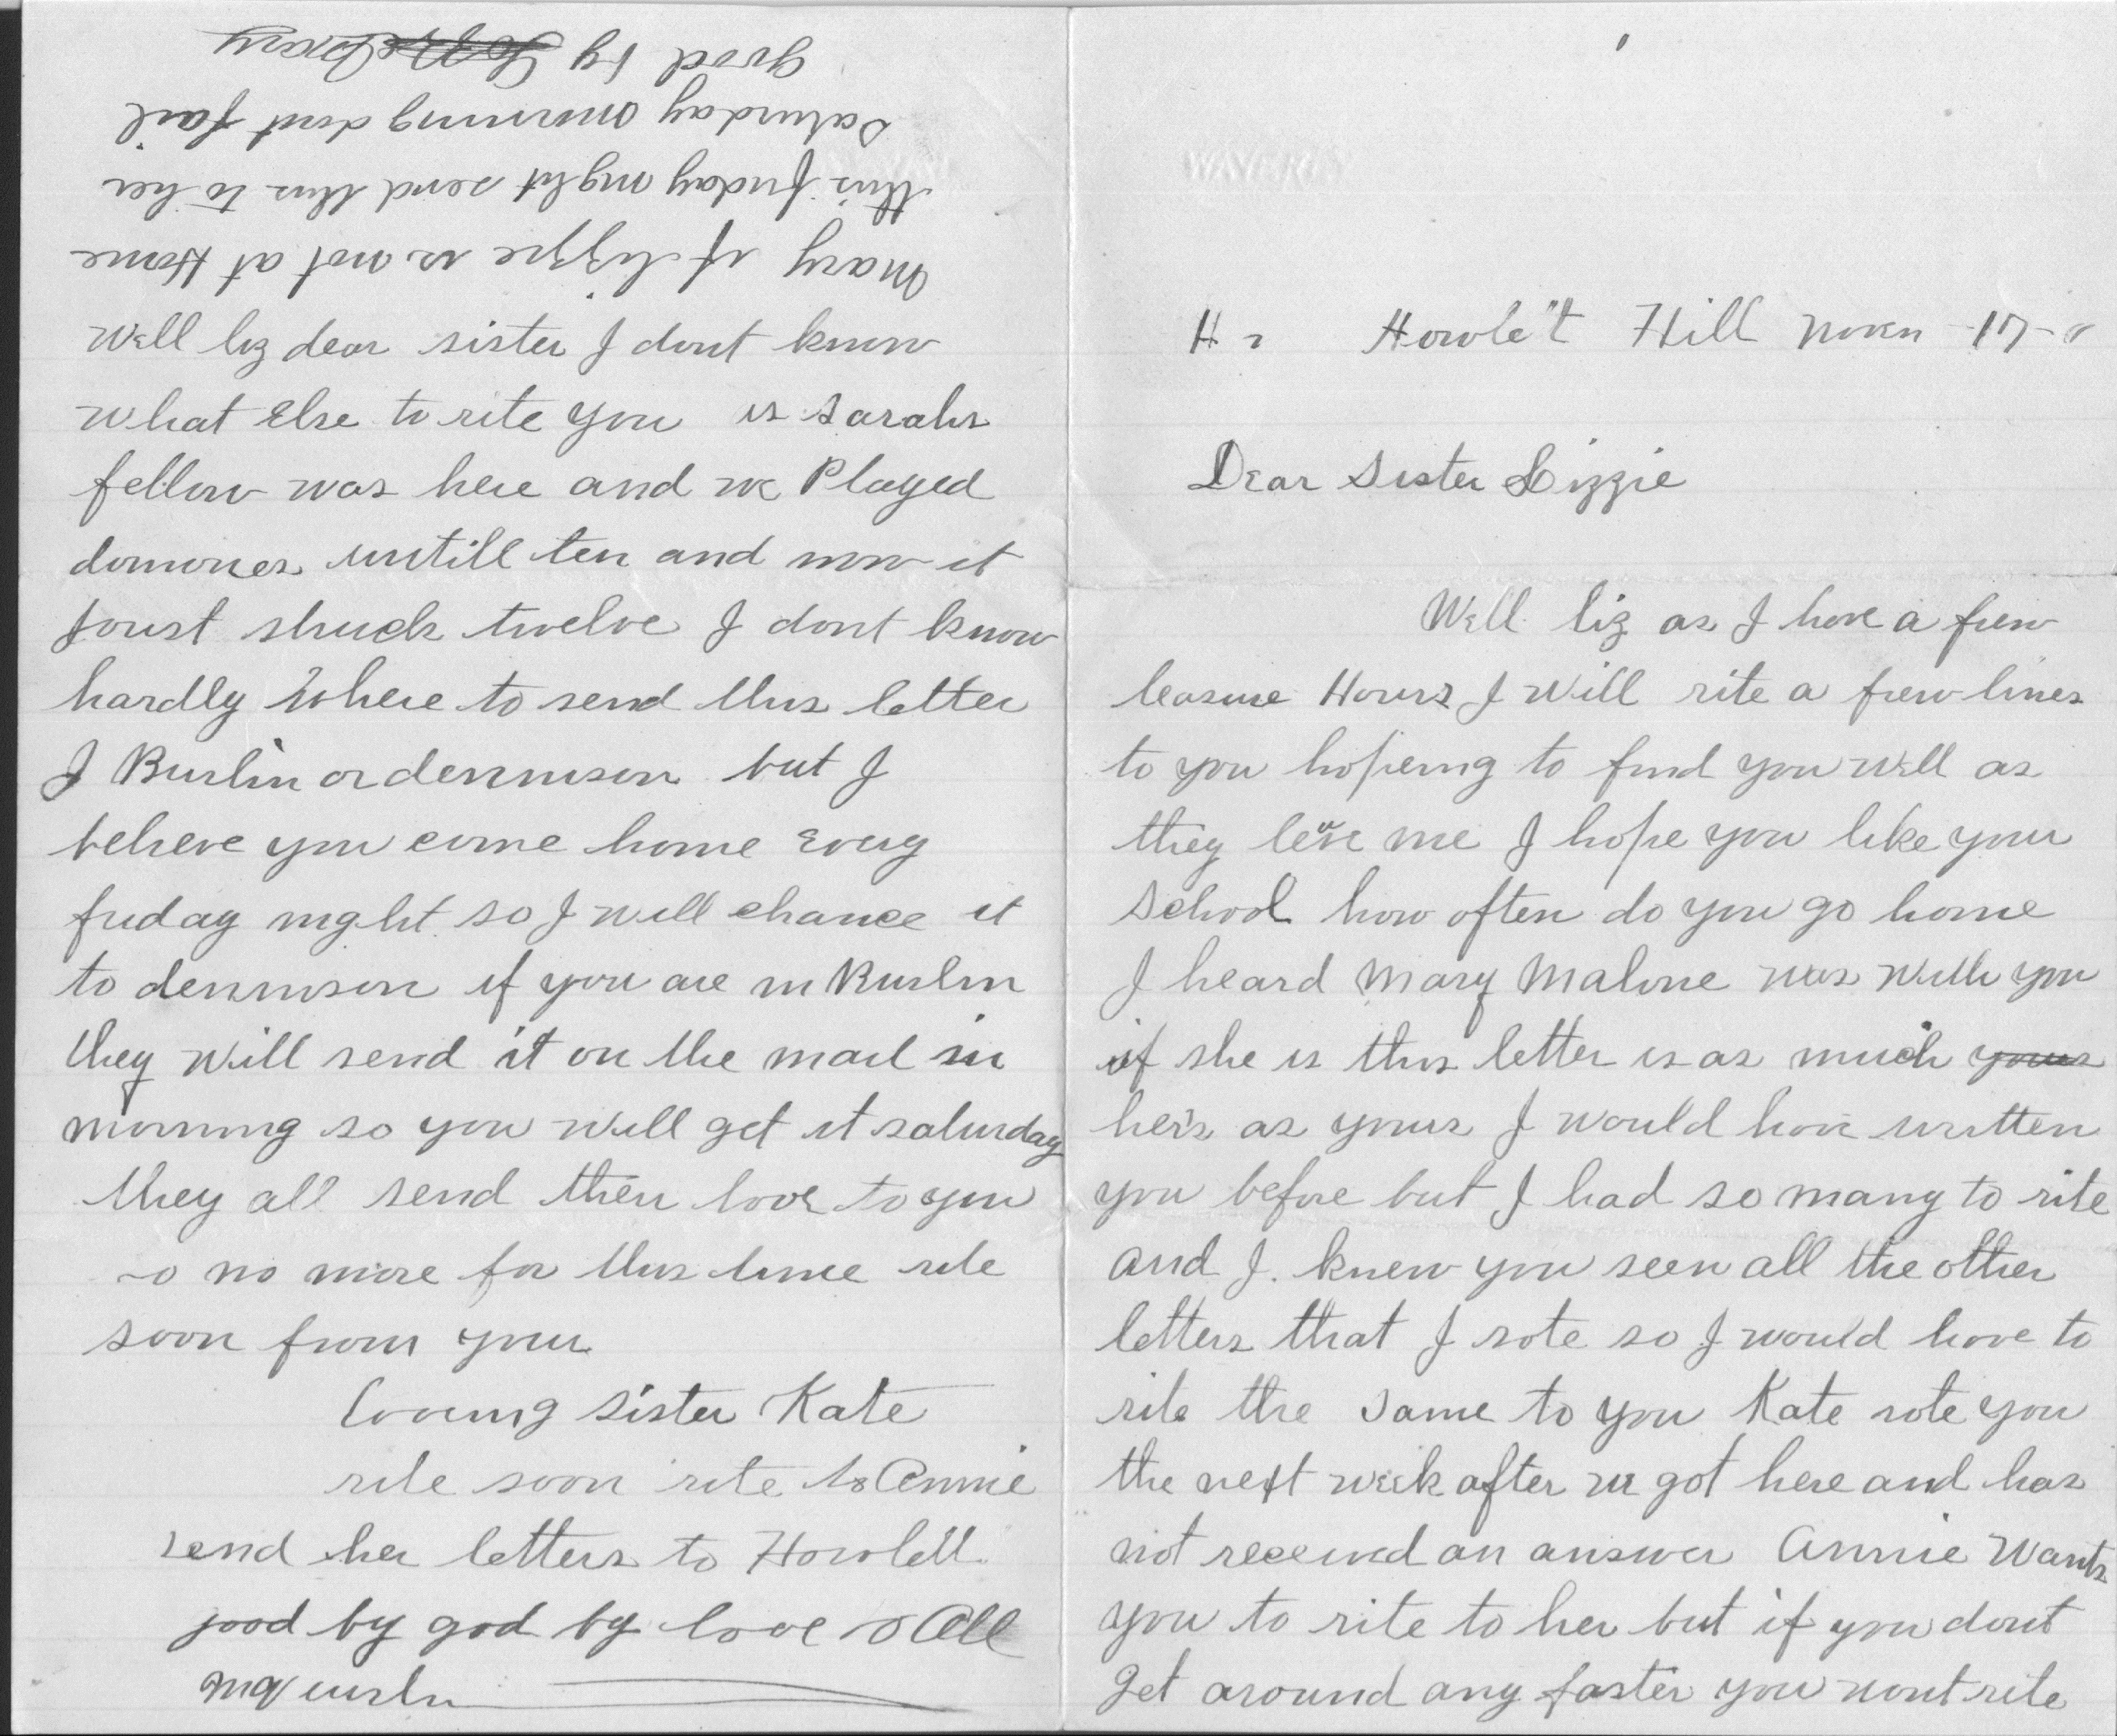 WAVERLEY
Howle't Hill Novn 17
Dear Sister Lizzie
Well liz as I have a few
leasure Hours I will rite a few lines
to you hopeing to find you well as
they leve me I hope you like your
School how often do you go home
I heard Mary Malone was with you
if she is this letter is as much yours
hers as yours I would have written
you before but I had so many to rite
and I knew you seen all the other
letters that I rote so I would have to
rite the same to you Kate rote you
the next week after we got here and has
not received an answer Annie Wants
you to rite to her but if you dont
get around any faster you wont rite
Well liz dear sister I dont know
what Else to rite you is Sarahs
fellow was here and we Played
domones untill ten and now it
joust struck twelve I dont know
hardly where to send this letter
I Burlin or dennison but I
believe you come home Every
friday night so I will chance it
to dennison if you are in Burlin
they will send it on the mail in
morning so you will get it saturday
they all send their love to you
so no more for this time rite
soon from your
loveing sister Kate
rite soon rite to Annie
send her letters to Howlett
good by god by love to All
Mary if lizzie is not at Home
this friday night send this to her
Saturday morning dont fail
good by